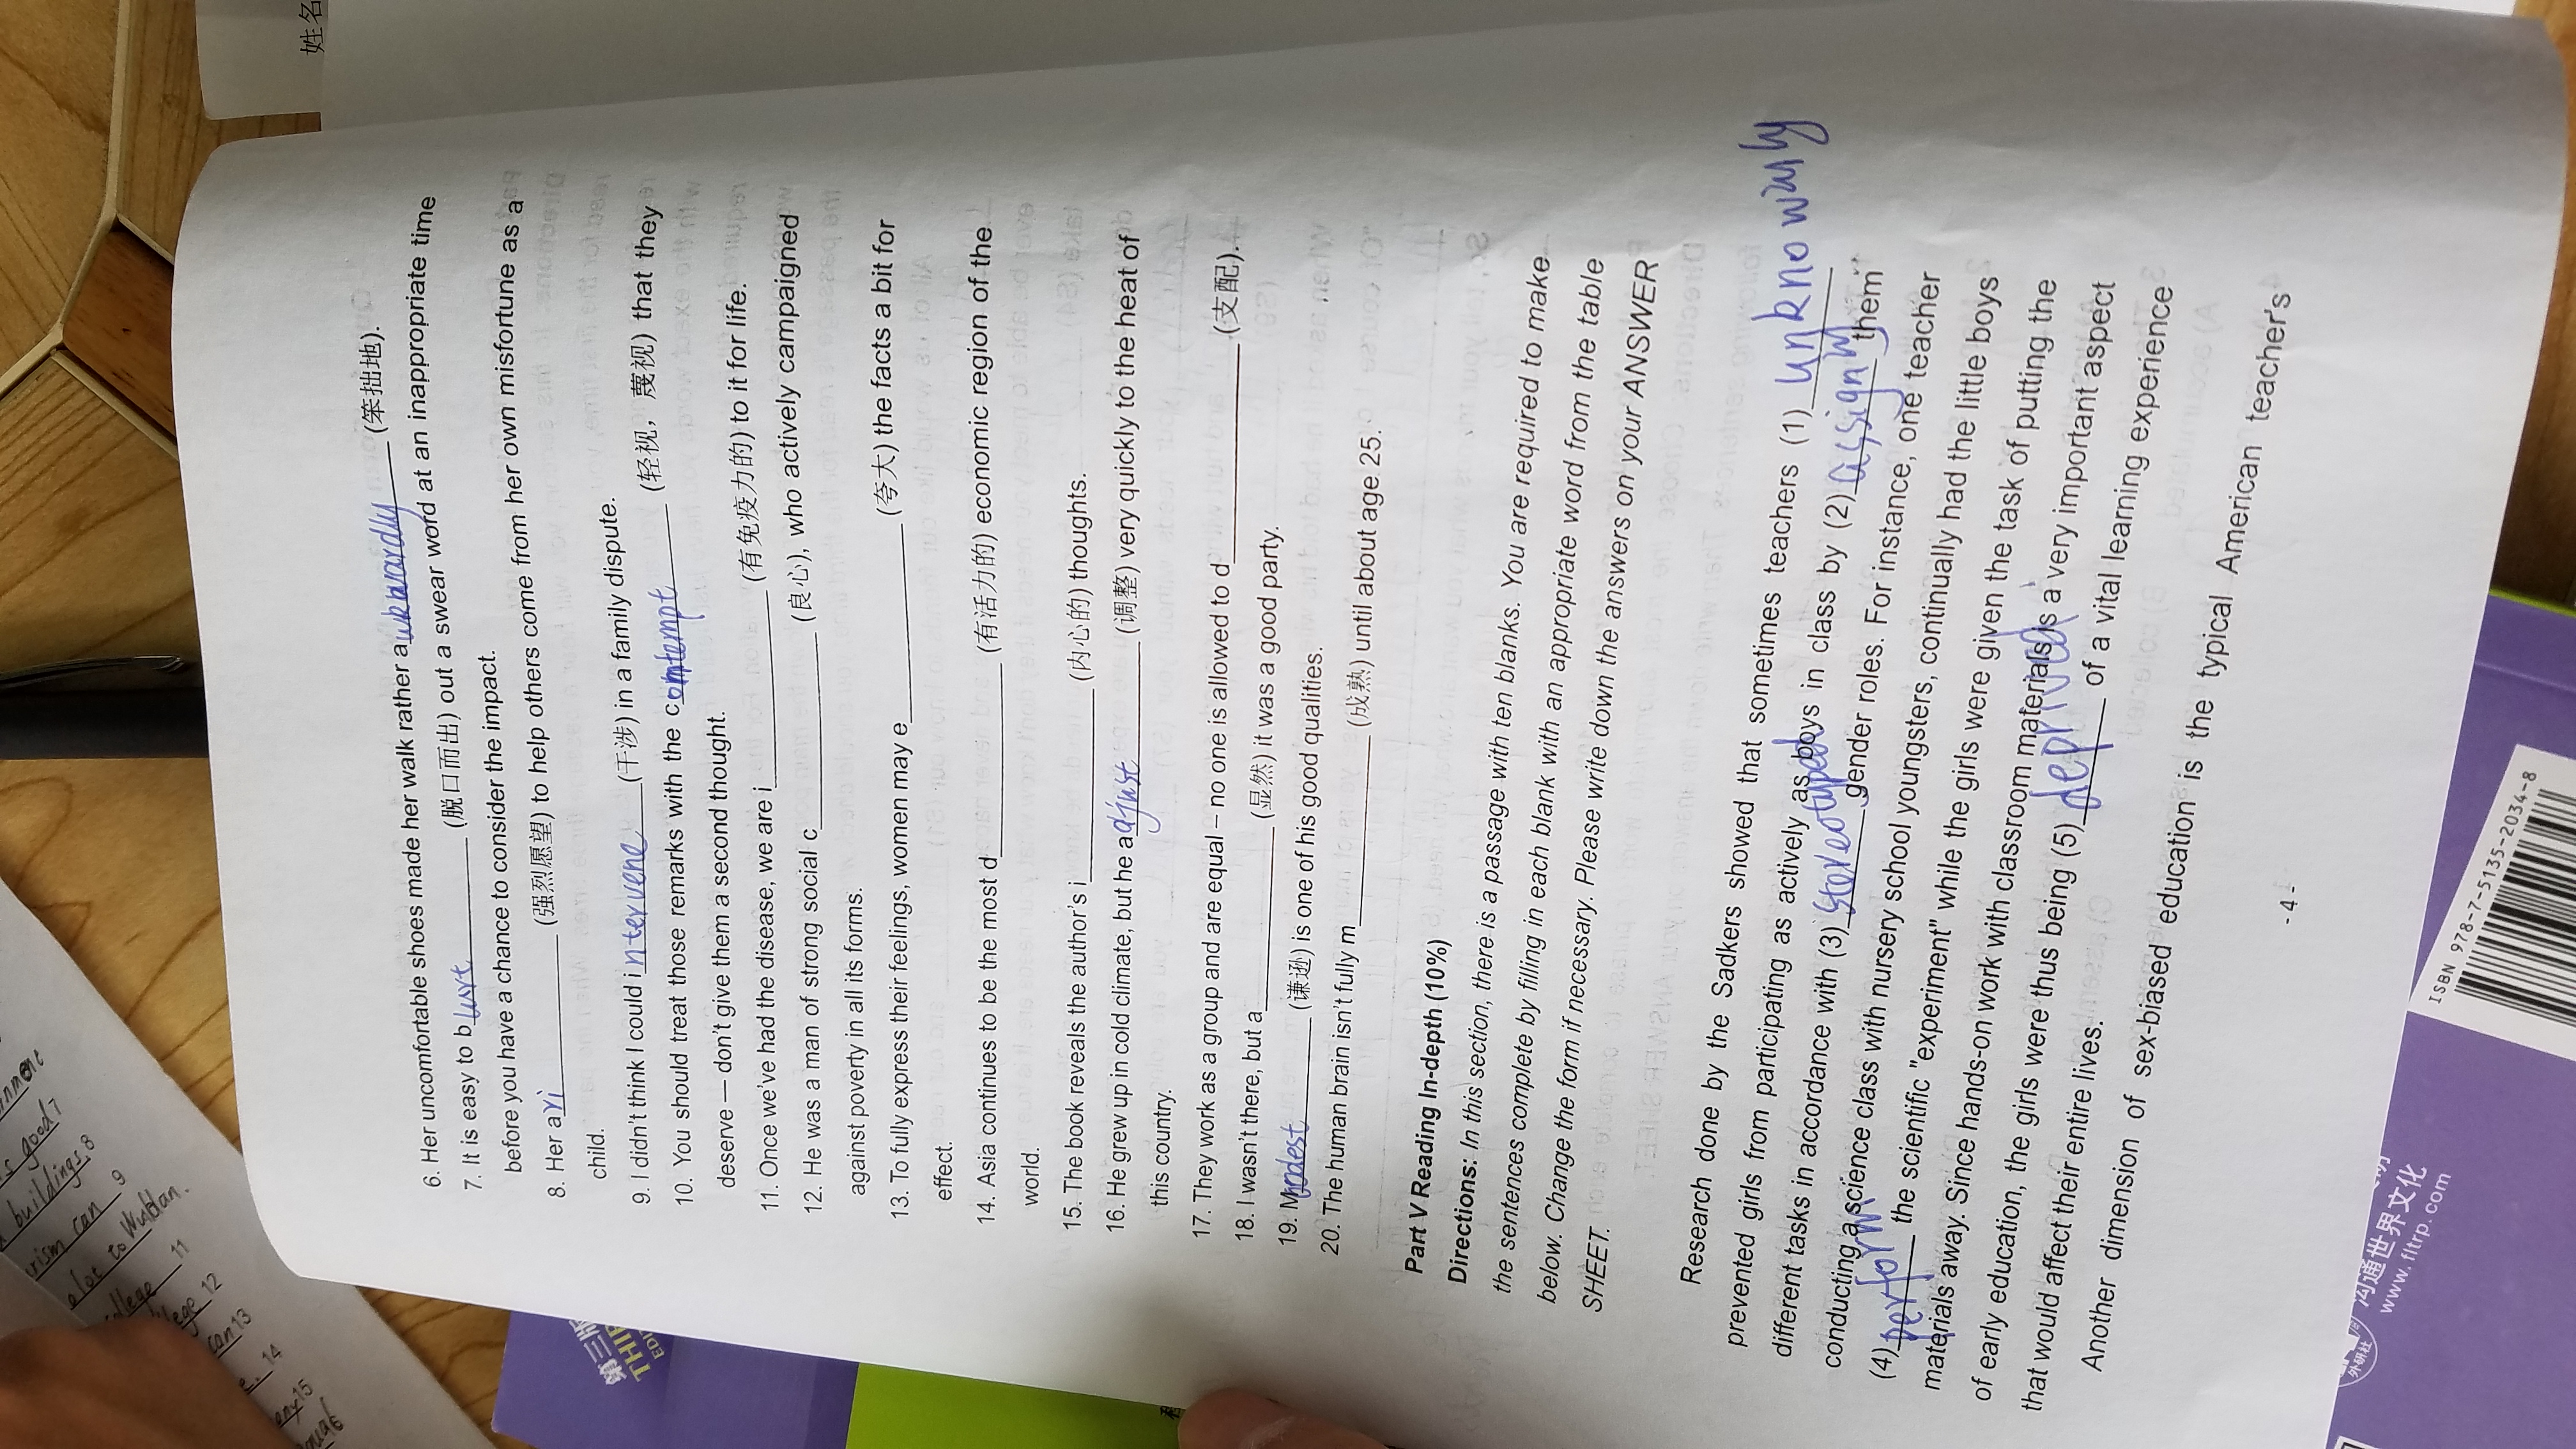 innment
s good 7
buildings, 8
rism can 9
a lot to Wuhan.
ollege 11
lege 12
can 13
e. 14
any 15
姓名
第三版
THI
EDIT
6. Her uncomfortable shoes made her walk rather awkwardly (笨拙地).
7. It is easy to blurt (脱口而出) out a swear word at an inappropriate time
before you have a chance to consider the impact.
8. Her ari (强烈愿望) to help others come from her own misfortune as a
child.
9. I didn't think I could intervene (干涉) in a family dispute.
10. You should treat those remarks with the comtempt (轻视，蔑视) that they
deserve — don't give them a second thought.
11. Once we've had the disease, we are i__________ (有免疫力的) to it for life.
12. He was a man of strong social c__________ (良心), who actively campaigned
against poverty in all its forms.
13. To fully express their feelings, women may e__________ (夸大) the facts a bit for
effect.
14. Asia continues to be the most d__________ (有活力的) economic region of the
world.
15. The book reveals the author's i__________ (内心的) thoughts.
16. He grew up in cold climate, but he adjust (调整) very quickly to the heat of
this country.
17. They work as a group and are equal – no one is allowed to d__________ (支配).
18. I wasn't there, but a__________ (显然) it was a good party.
19. Modest (谦逊) is one of his good qualities.
20. The human brain isn't fully m__________ (成熟) until about age 25.
Part V Reading In-depth (10%)
Directions: In this section, there is a passage with ten blanks. You are required to make
the sentences complete by filling in each blank with an appropriate word from the table
below. Change the form if necessary. Please write down the answers on your ANSWER
SHEET.
Research done by the Sadkers showed that sometimes teachers (1) unknowinly
prevented girls from participating as actively as boys in class by (2) assigning them
different tasks in accordance with (3) stereotyped gender roles. For instance, one teacher
conducting a science class with nursery school youngsters, continually had the little boys
(4) perform the scientific "experiment" while the girls were given the task of putting the
materials away. Since hands-on work with classroom materials is a very important aspect
of early education, the girls were thus being (5) deprived of a vital learning experience
that would affect their entire lives.
Another dimension of sex-biased education is the typical American teacher's
- 4 -
外研社
沟通世界文化
www.fltrp.com
ISBN 978-7-5135-2034-8